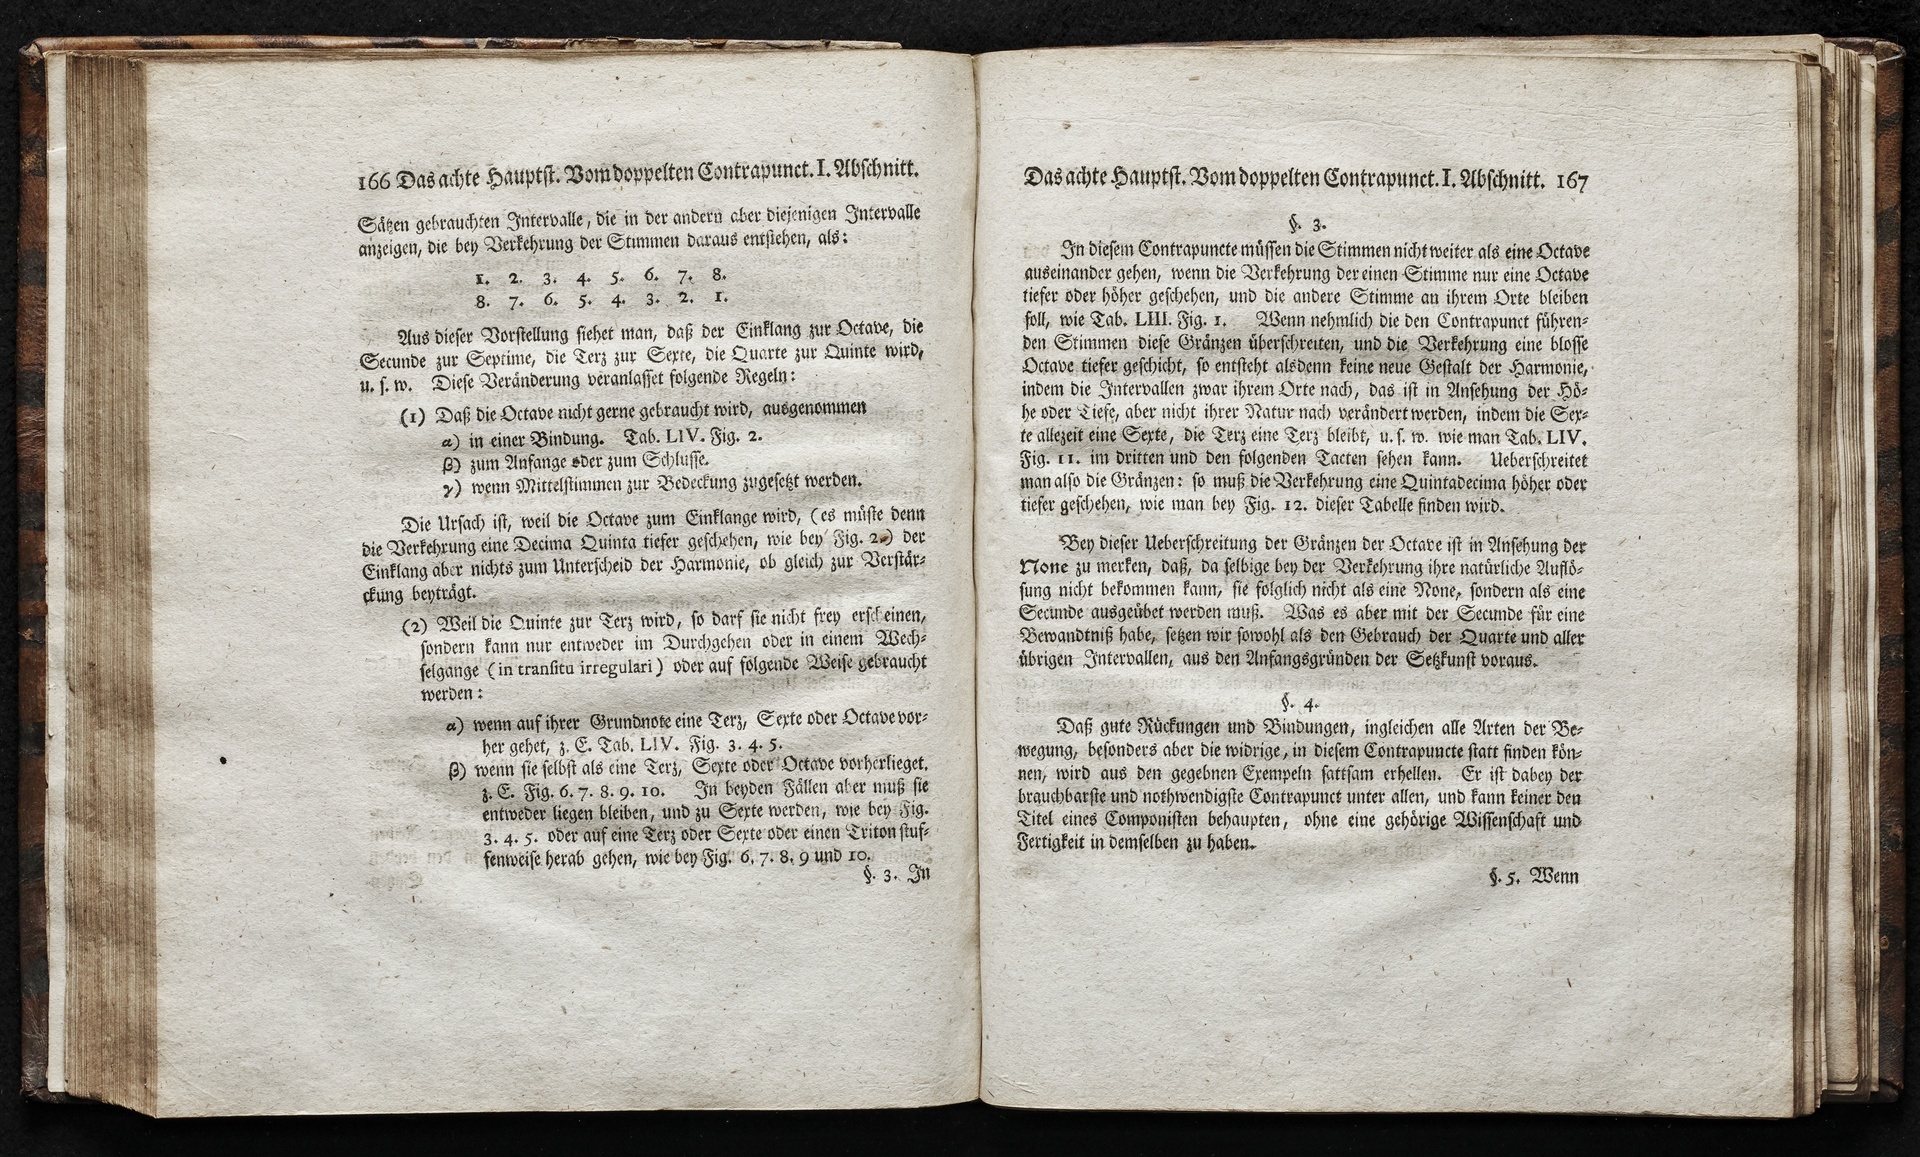 166 Das achte Hauptst. Vom doppelten Contrapunct. I. Abschnitt.
Sätzen gebrauchten Intervalle, die in der andern aber diejenigen Intervalle
anzeigen, die bey Verkehrung der Stimmen daraus entstehen, als:
1. 2. 3. 4. 5. 6. 7. 8.
8. 7. 6. 5. 4. 3. 2. 1.
Aus dieser Vorstellung siehet man, daß der Einklang zur Octave, die
Secunde zur Septime, die Terz zur Sexte, die Quarte zur Quinte wird,
u. s. w. Diese Veränderung veranlasset folgende Regeln:
(1) Daß die Octave nicht gerne gebraucht wird, ausgenommen
α) in einer Bindung. Tab. LIV. Fig. 2.
β) zum Anfange oder zum Schlusse.
γ) wenn Mittelstimmen zur Bedeckung zugesetzt werden.
Die Ursach ist, weil die Octave zum Einklange wird, (es müste denn
die Verkehrung eine Decima Quinta tiefer geschehen, wie bey Fig. 2.) der
Einklang aber nichts zum Unterscheid der Harmonie, ob gleich zur Verstär-
ckung beyträgt.
(2) Weil die Quinte zur Terz wird, so darf sie nicht frey erscheinen,
sondern kann nur entweder im Durchgehen oder in einem Wech-
selgange (in transitu irregulari) oder auf folgende Weise gebraucht
werden:
α) wenn auf ihrer Grundnote eine Terz, Sexte oder Octave vor-
her gehet, z. E. Tab. LIV. Fig. 3. 4. 5.
β) wenn sie selbst als eine Terz, Sexte oder Octave vorherlieget.
z. E. Fig. 6. 7. 8. 9. 10. In beyden Fällen aber muß sie
entweder liegen bleiben, und zu Sexte werden, wie bey Fig.
3. 4. 5. oder auf eine Terz oder Sexte oder einen Triton stuf-
fenweise herab gehen, wie bey Fig. 6. 7. 8. 9 und 10.
§. 3. In
Das achte Hauptst. Vom doppelten Contrapunct. I. Abschnitt. 167
§. 3.
In diesem Contrapuncte müssen die Stimmen nicht weiter als eine Octave
auseinander gehen, wenn die Verkehrung der einen Stimme nur eine Octave
tiefer oder höher geschehen, und die andere Stimme an ihrem Orte bleiben
soll, wie Tab. LIII. Fig. 1. Wenn nehmlich die den Contrapunct führen-
den Stimmen diese Gränzen überschreiten, und die Verkehrung eine blosse
Octave tiefer geschicht, so entsteht alsdenn keine neue Gestalt der Harmonie,
indem die Intervallen zwar ihrem Orte nach, das ist in Ansehung der Hö-
he oder Tiefe, aber nicht ihrer Natur nach verändert werden, indem die Sex-
te allezeit eine Sexte, die Terz eine Terz bleibt, u. s. w. wie man Tab. LIV.
Fig. 11. im dritten und den folgenden Tacten sehen kann. Ueberschreitet
man also die Gränzen: so muß die Verkehrung eine Quintadecima höher oder
tiefer geschehen, wie man bey Fig. 12. dieser Tabelle finden wird.
Bey dieser Ueberschreitung der Gränzen der Octave ist in Ansehung der
None zu merken, daß, da selbige bey der Verkehrung ihre natürliche Auflö-
sung nicht bekommen kann, sie folglich nicht als eine None, sondern als eine
Secunde ausgeübet werden muß. Was es aber mit der Secunde für eine
Bewandtniß habe, setzen wir sowohl als den Gebrauch der Quarte und aller
übrigen Intervallen, aus den Anfangsgründen der Setzkunst voraus.
§. 4.
Daß gute Rückungen und Bindungen, ingleichen alle Arten der Be-
wegung, besonders aber die widrige, in diesem Contrapuncte statt finden kön-
nen, wird aus den gegebnen Exempeln sattsam erhellen. Er ist dabey der
brauchbarste und nothwendigste Contrapunct unter allen, und kann keiner den
Titel eines Componisten behaupten, ohne eine gehörige Wissenschaft und
Fertigkeit in demselben zu haben.
§. 5. Wenn